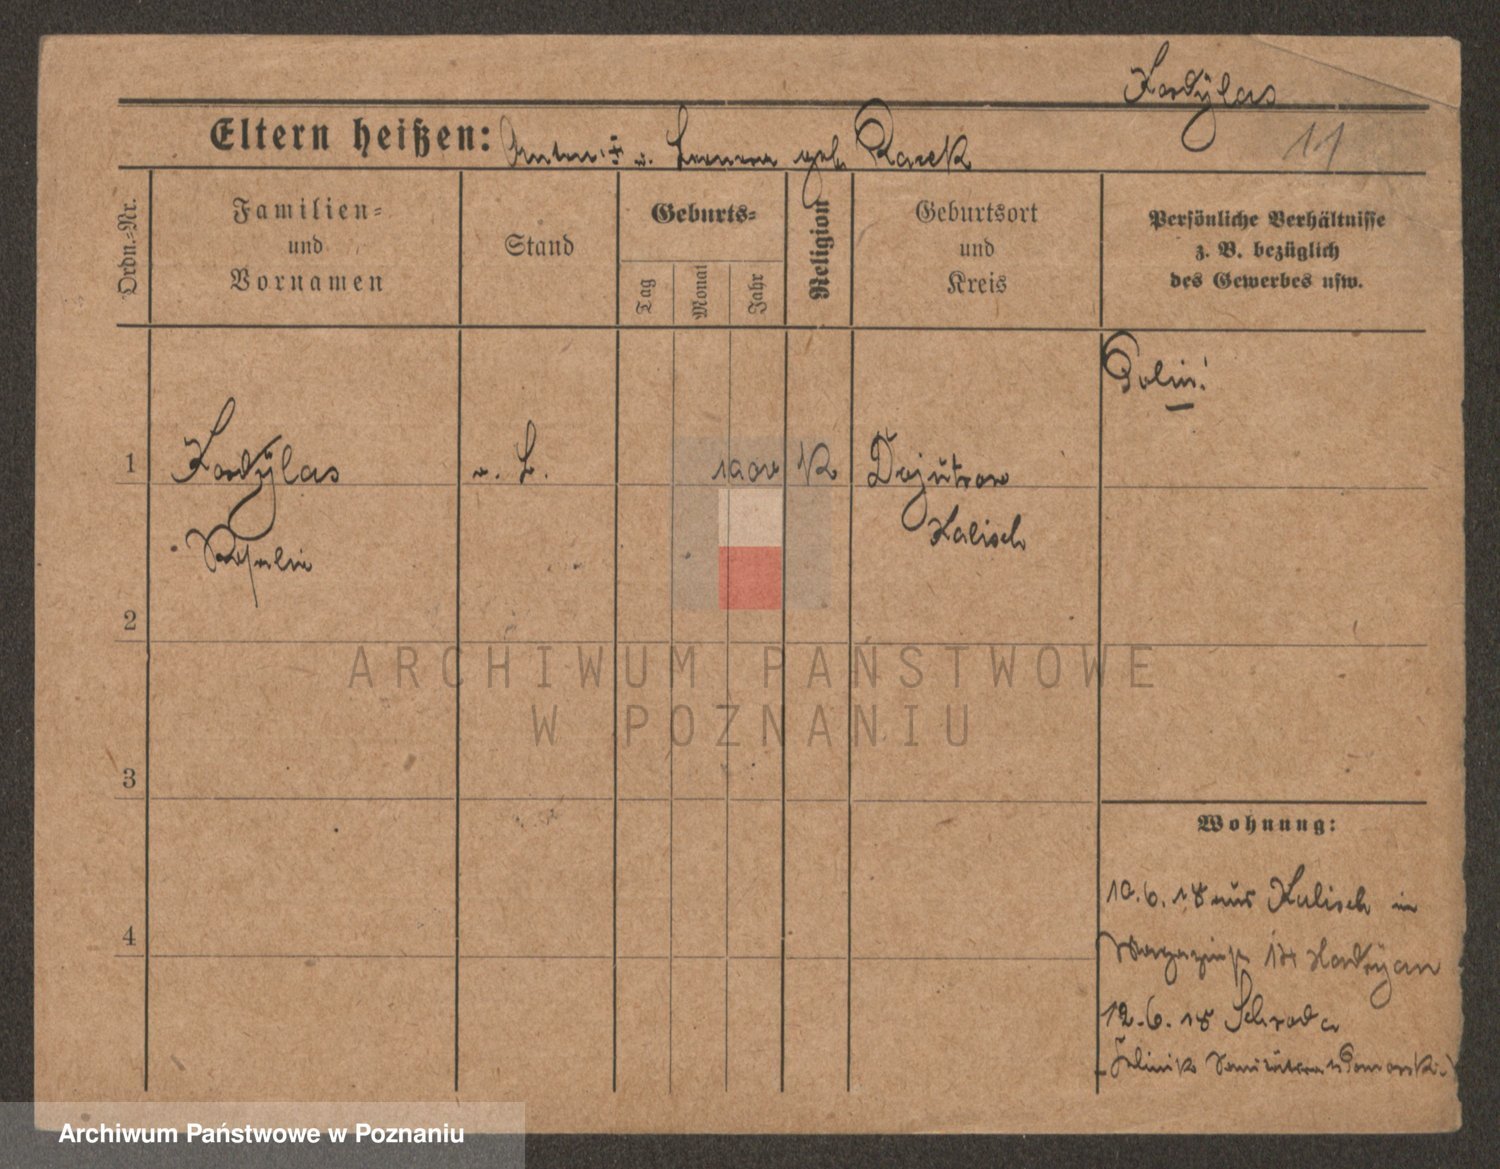 Kordÿlas
11
Eltern heißen: Anton ‡ u. geb.
Ordn.-Nr.
Familien-
und
Vornamen
Stand
Geburts-
Tag
Monat
Jahr
Religion
Geburtsort
und
Kreis
Persönliche Verhältnisse
z. B. bezüglich
des Gewerbes usw.
Polin!
1
Kordÿlas
o. B.
1900
K
Dojutrow
Kalisch
2
ARCHIWUM PAŃSTWOWE
W POZNANIU
3
Wohnung:
10.6.18 aus Kalisch in
Magazinstr 14
4
12.6.18 Schroda
Archiwum Państwowe w Poznaniu